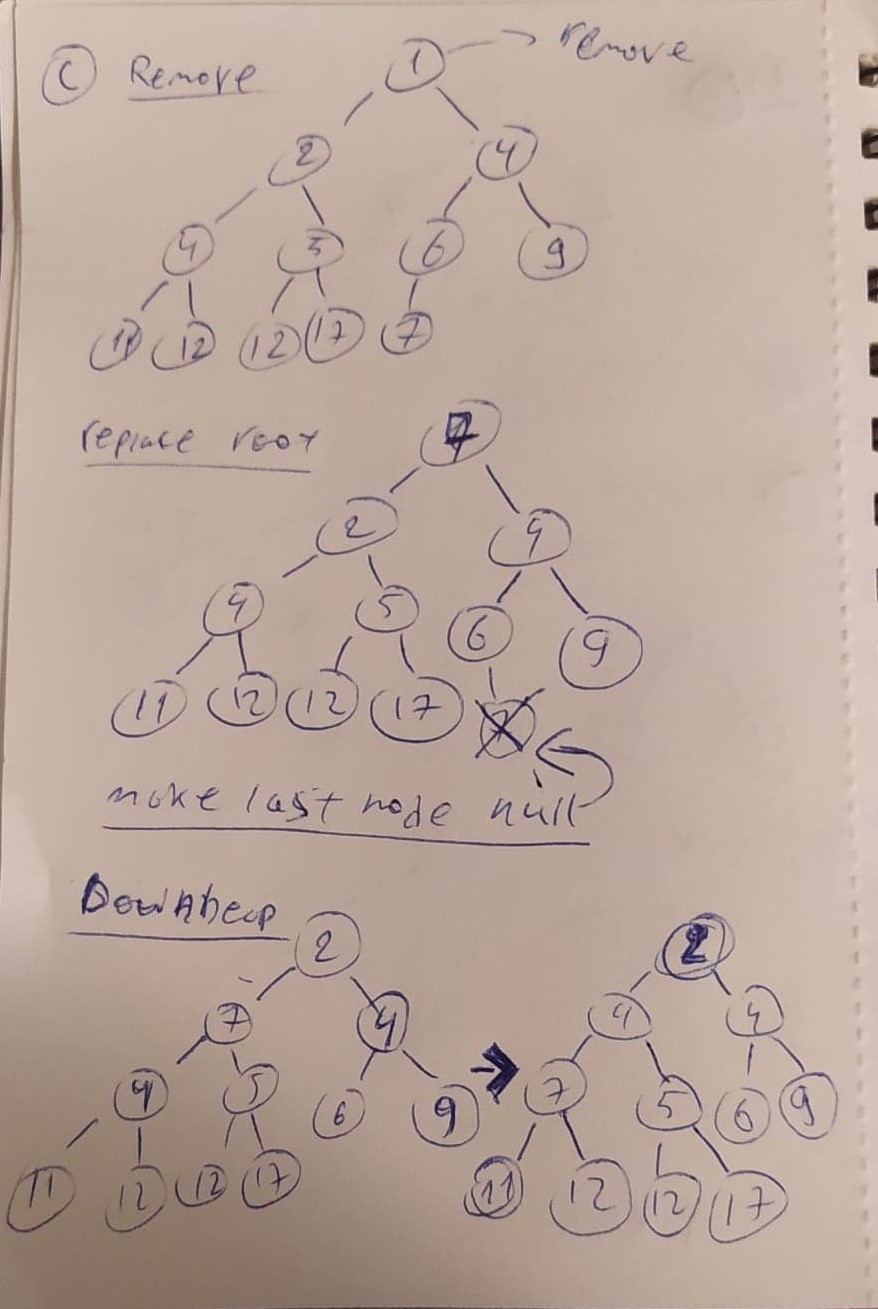 C Remove 1 remove
2 4
4 5 6 9
11 12 12 17 7
replace root 7
2 4
4 5 6 9
11 12 12 17 7
make last node null
Downheap
2 2
7 4 4 4
4 5 6 9 7 5 6 9
11 12 12 17 11 12 12 17